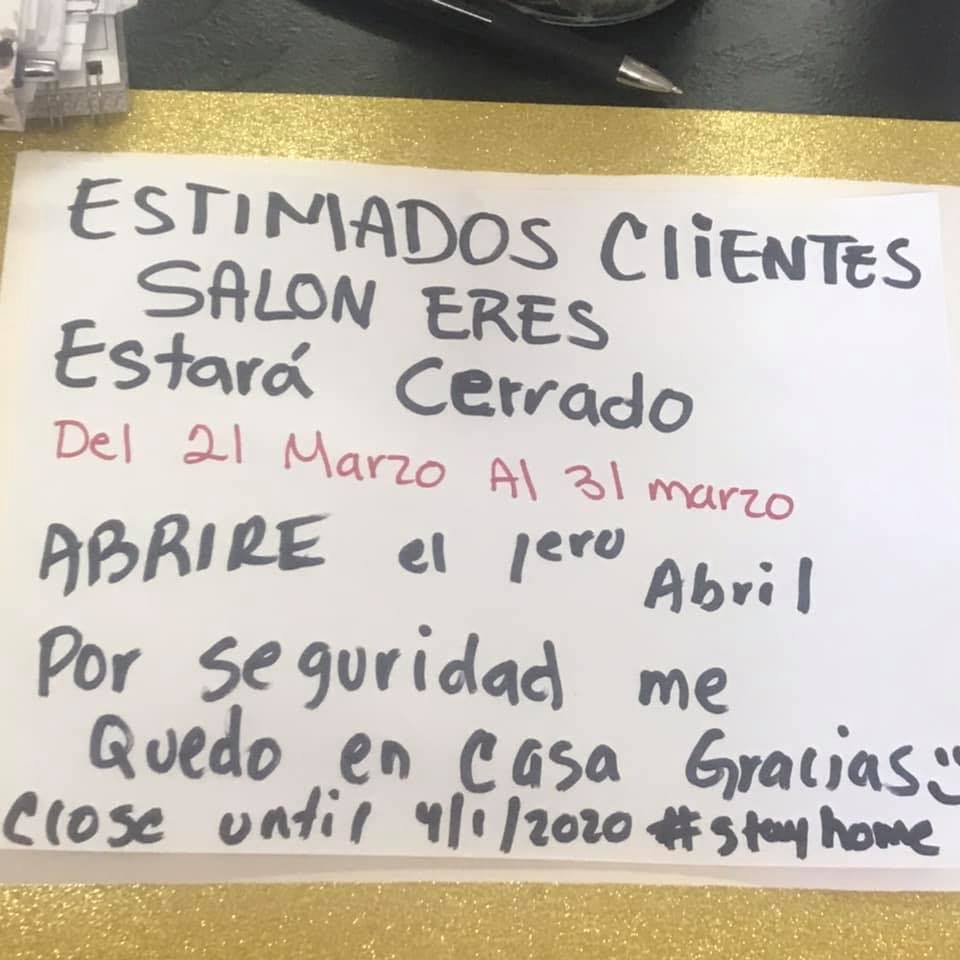 ESTIMADOS CliENTES
SALON ERES
Estará Cerrado
Del 21 Marzo Al 31 marzo
ABRIRE el 1ero Abril
Por seguridad me
Quedo en casa Gracias
Close until 4/1/2020 #stay home